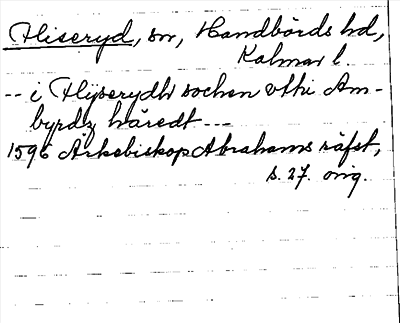 Fliseryd, sn, Handbörds hd,
Kalmar l.
-- i Flijserydh sochen vthi Am-
byrdz häredt ---
1596 Ärkebiskop Abrahams räfst,
s. 27. orig.